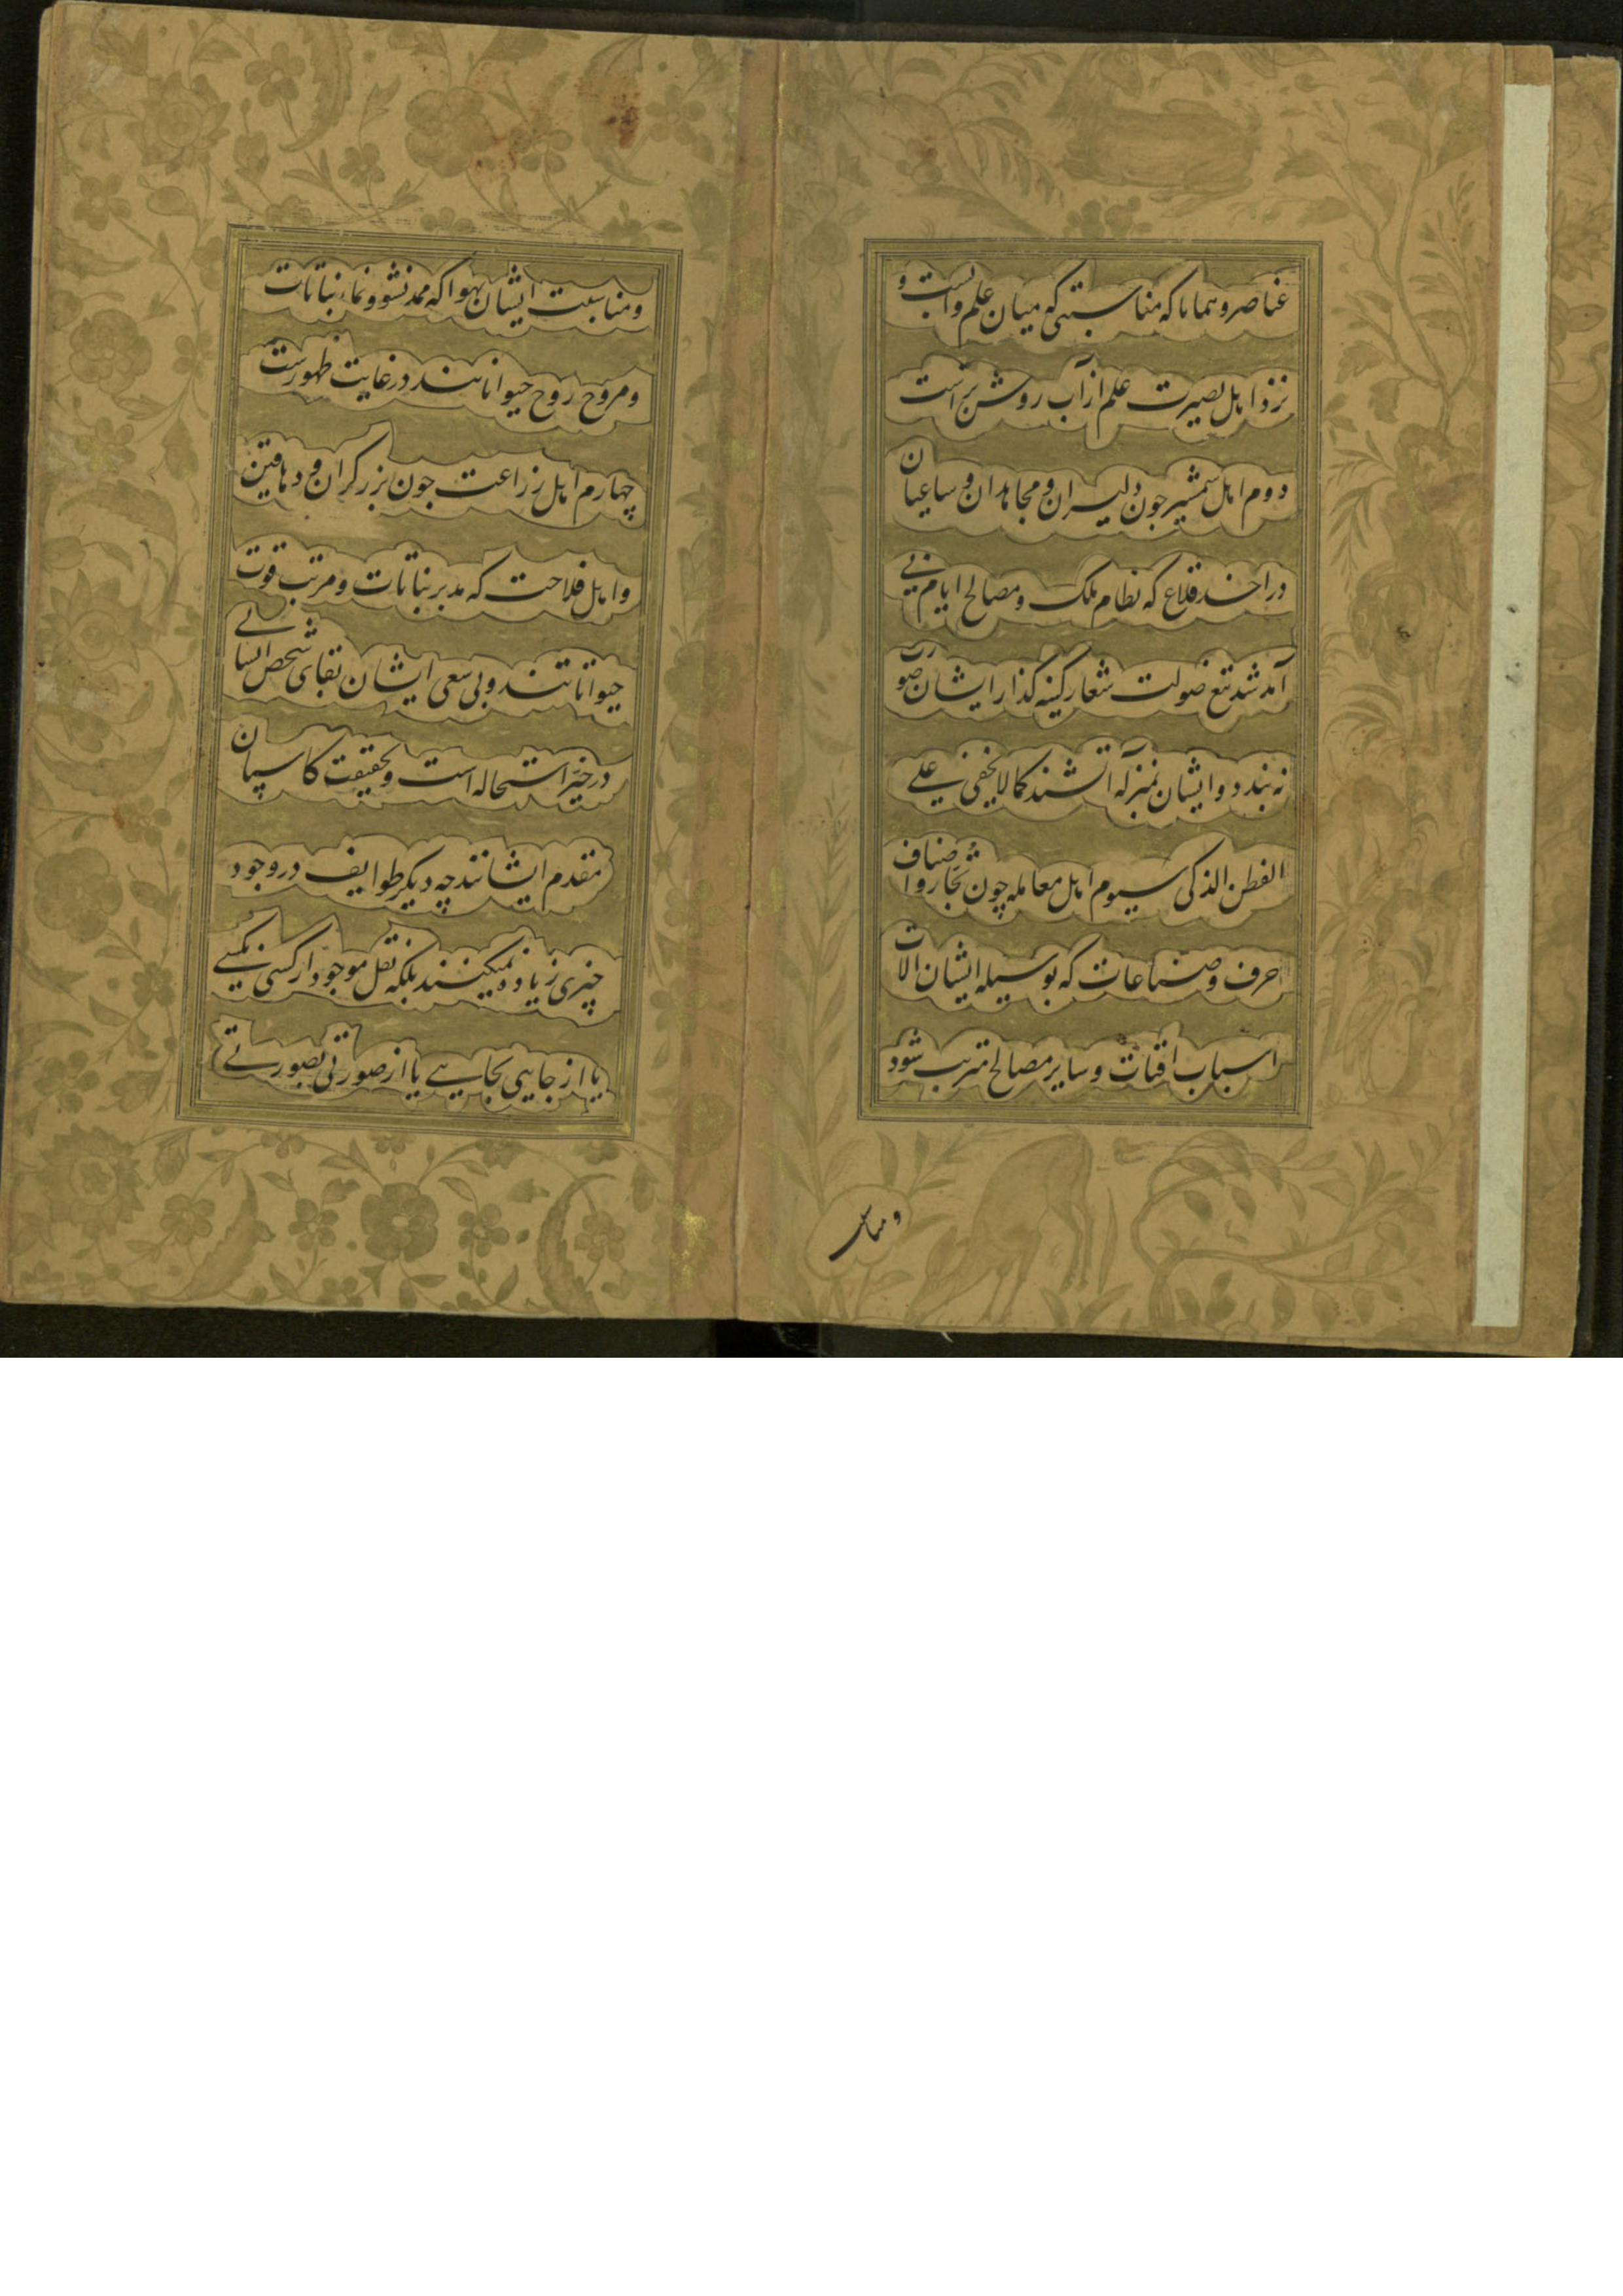 عناصر و همانا که مناسبتی که میان علم و آبست و
نزد اهل بصیرت علم از آب روشن تر است
دوم اهل شمشیر جون دلیران و مجاهدان و ساعیان
در اخذ قلاع که نظام ملک و مصالح ایام بی
آمد شد تیغ صولت شعار کینه گذار ایشان صورت
نه بندد و ایشان بمنزله آتشند کما لا یخفی علی
الفطن الذکی سیوم اهل معامله چون تجار و اصناف
حرف و صناعات که بوسیله ایشان الات
اسباب اقتات و سایر مصالح مترتب شود
ومناسبت
ومناسبت ایشان بهوا که ممد نشو و نماء نباتات
ومروح روح حیواناتند در غایت ظهورست
چهارم اهل زراعت جون بزرگران و دهاقین
و اهل فلاحت که مدبر نباتات و مرتب قوت
حیواناتند و بی سعی ایشان بقای شخص انسانی
در حیز استحاله است و بحقیقت کاسبان
مقدم ایشانند چه دیگر طوایف در وجود
چیزی زیاده نمیکنند بلکه نقل موجود از کسی بکسی
یا از جایی بجایی یا از صورتی بصورتی